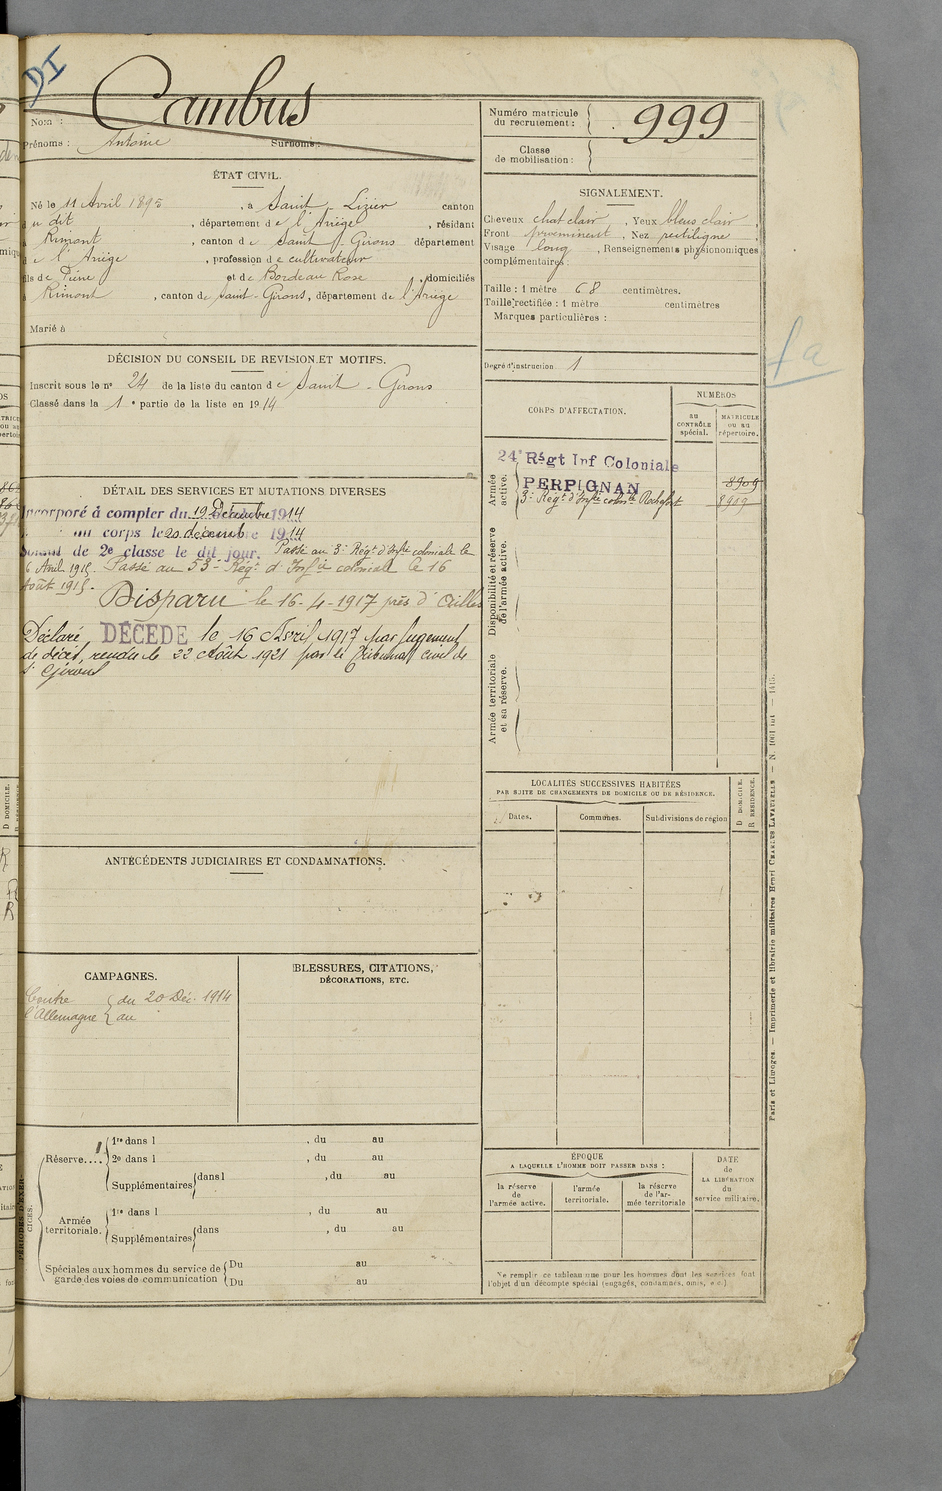 DI
Cambus
Nom :
Prénoms : Antoine Surnoms :
Numéro matricule
du recrutement : 999
Classe
de mobilisation :
ÉTAT CIVIL.
Né le 11 Avril 1895, à Saint-Lizier canton
du dit, département de l'Ariège, résidant
à Rimont, canton de Saint-Girons département
de l'Ariège, profession de cultivateur
fils de Pierre et de Bordeau Rose, domiciliés
à Rimont, canton de Saint-Girons, département de l'Ariège
Marié à
SIGNALEMENT.
Cheveux chat clair, Yeux bleus clair,
Front proeminent, Nez rectiligne,
Visage long, Renseignements physionomiques
complémentaires :
Taille : 1 mètre 68 centimètres.
Taille rectifiée : 1 mètre centimètres
Marques particulières :
Degré d'instruction. 1
DÉCISION DU CONSEIL DE REVISION ET MOTIFS.
Inscrit sous le n° 24 de la liste du canton de Saint-Girons
Classé dans la 1e partie de la liste en 1914
CORPS D'AFFECTATION.
NUMÉROS
au
CONTRÔLE
spécial.
MATRICULE
ou au
répertoire.
Armée
active.
24e Régt Inf Coloniale
PERPIGNAN 8909
3e Régt d'Infie colon. Rochefort 8919
Disponibilité et réserve
de l'armée active.
Armée territoriale
et sa réserve.
DÉTAIL DES SERVICES ET MUTATIONS DIVERSES
Incorporé à compter du 19 Décembre 1914
au corps le 20 décembre 1914
Soldat de 2e classe le dit jour. Passé au 3e Régt d'Infie coloniale le
6 Avril 1915. Passé au 53e Régt d'Infie coloniale le 16
Août 1915.
Disparu le 16-4-1917 près d'Ailles
Déclaré DÉCÉDÉ le 16 Avril 1917 par jugement
de décès, rendu le 22 Août 1921 par le Tribunal civil de
St Girons
LOCALITÉS SUCCESSIVES HABITÉES
PAR SUITE DE CHANGEMENTS DE DOMICILE OU DE RÉSIDENCE.
Dates. Communes. Subdivisions de région
D DOMICILE.
R RÉSIDENCE.
ANTÉCÉDENTS JUDICIAIRES ET CONDAMNATIONS.
CAMPAGNES.
Contre du 20 Déc. 1914
l'Allemagne au
BLESSURES, CITATIONS,
DÉCORATIONS, ETC.
PÉRIODES D'EXERCICES.
Réserve....
1re dans l , du au
2e dans l , du au
Supplémentaires dans l , du au
Armée
territoriale.
1re dans l , du au
Supplémentaires dans , du au
Spéciales aux hommes du service de
garde des voies de communication
Du au
Du au
ÉPOQUE
A LAQUELLE L'HOMME DOIT PASSER DANS :
la réserve
de
l'armée active.
l'armée
territoriale.
la réserve
de l'ar-
mée territoriale
DATE
de
LA LIBÉRATION
du
service militaire.
Ne remplir ce tableau que pour les hommes dont les services font
l'objet d'un décompte spécial (engagés, condamnés, omis, etc.)
Paris et Limoges. — Imprimerie et librairie militaires Henri CHARLES-LAVAUZELLE